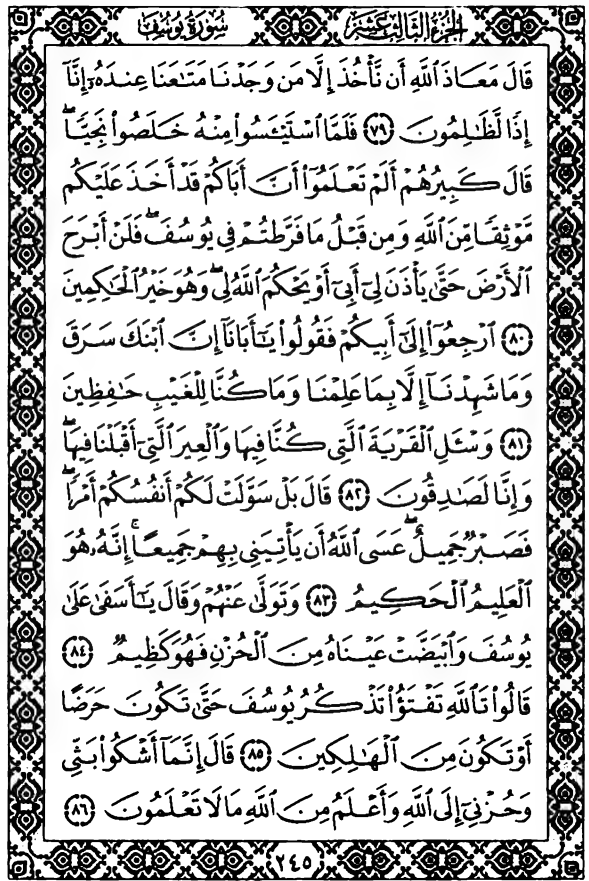 سُورَةُ يُوسُفَ الجُزْءُ الثَّالِثَ عَشَرَ
قَالَ مَعَاذَ ٱللَّهِ أَن نَّأْخُذَ إِلَّا مَن وَجَدْنَا مَتَٰعَنَا عِندَهُۥٓ إِنَّآ
إِذًا لَّظَٰلِمُونَ ﴿٧٩﴾ فَلَمَّا ٱسْتَيْـَٔسُوا۟ مِنْهُ خَلَصُوا۟ نَجِيًّا ۖ
قَالَ كَبِيرُهُمْ أَلَمْ تَعْلَمُوٓا۟ أَنَّ أَبَاكُمْ قَدْ أَخَذَ عَلَيْكُم
مَّوْثِقًا مِّنَ ٱللَّهِ وَمِن قَبْلُ مَا فَرَّطتُمْ فِى يُوسُفَ ۖ فَلَنْ أَبْرَحَ
ٱلْأَرْضَ حَتَّىٰ يَأْذَنَ لِىٓ أَبِىٓ أَوْ يَحْكُمَ ٱللَّهُ لِى ۖ وَهُوَ خَيْرُ ٱلْحَٰكِمِينَ
﴿٨٠﴾ ٱرْجِعُوٓا۟ إِلَىٰٓ أَبِيكُمْ فَقُولُوا۟ يَٰٓأَبَانَآ إِنَّ ٱبْنَكَ سَرَقَ
وَمَا شَهِدْنَآ إِلَّا بِمَا عَلِمْنَا وَمَا كُنَّا لِلْغَيْبِ حَٰفِظِينَ
﴿٨١﴾ وَسْـَٔلِ ٱلْقَرْيَةَ ٱلَّتِى كُنَّا فِيهَا وَٱلْعِيرَ ٱلَّتِىٓ أَقْبَلْنَا فِيهَا ۖ
وَإِنَّا لَصَٰدِقُونَ ﴿٨٢﴾ قَالَ بَلْ سَوَّلَتْ لَكُمْ أَنفُسُكُمْ أَمْرًا ۖ
فَصَبْرٌ جَمِيلٌ ۖ عَسَى ٱللَّهُ أَن يَأْتِيَنِى بِهِمْ جَمِيعًا ۚ إِنَّهُۥ هُوَ
ٱلْعَلِيمُ ٱلْحَكِيمُ ﴿٨٣﴾ وَتَوَلَّىٰ عَنْهُمْ وَقَالَ يَٰٓأَسَفَىٰ عَلَىٰ
يُوسُفَ وَٱبْيَضَّتْ عَيْنَاهُ مِنَ ٱلْحُزْنِ فَهُوَ كَظِيمٌ ﴿٨٤﴾
قَالُوا۟ تَٱللَّهِ تَفْتَؤُا۟ تَذْكُرُ يُوسُفَ حَتَّىٰ تَكُونَ حَرَضًا
أَوْ تَكُونَ مِنَ ٱلْهَٰلِكِينَ ﴿٨٥﴾ قَالَ إِنَّمَآ أَشْكُوا۟ بَثِّى
وَحُزْنِىٓ إِلَى ٱللَّهِ وَأَعْلَمُ مِنَ ٱللَّهِ مَا لَا تَعْلَمُونَ ﴿٨٦﴾
٢٤٥